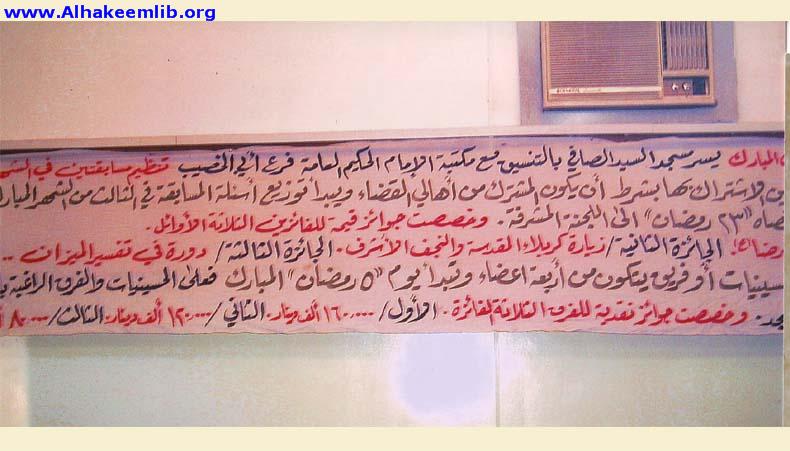 www.Alhakeemlib.org
المبارك يسر مسجد السيد الصافي بالتنسيق مع مكتبة الإمام الحكيم العامة فرع أبي الخصيب تنظيم مسابقتين في الشهر
الاشتراك بها بشرط أن يكون المشترك من أهالي القضاء ويبدأ توزيع أسئلة المسابقة في الثالث من الشهر المبارك
"٢٣ رمضان" الى اللجنة المشرفة . وخصصت جوائز قيمة للفائزين الثلاثة الأوائل.
الجائزة الثانية/ زيارة كربلاء المقدسة والنجف الأشرف. الجائزة الثالثة/ دورة في تفسير الميزان ..
أو فريق يتكون من أربعة اعضاء وتبدأ يوم "٥ رمضان" المبارك فعلى الحسينيات والفرق الراغبة
وخصصت جوائز نقدية للفرق الثلاثة الفائزة . الأول/ ١٦٠,٠٠٠ ألف دينار. الثاني/ ١٢٠,٠٠٠ ألف دينار. الثالث/ ٨٠,٠٠٠